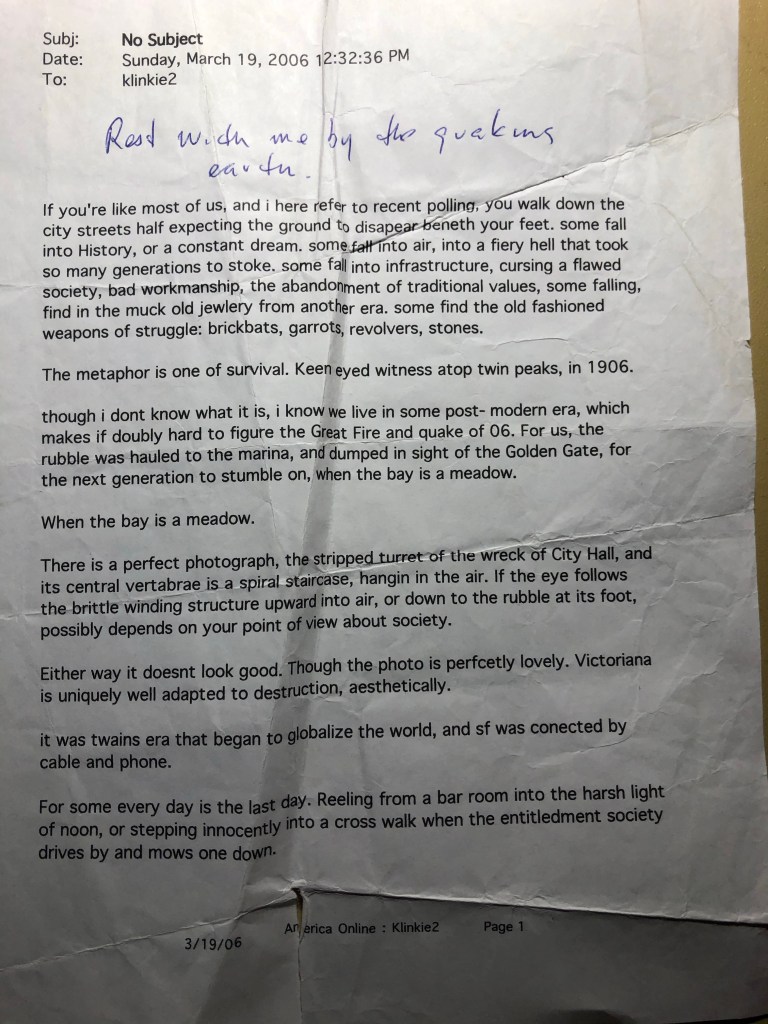 Subj: No Subject
Date: Sunday, March 19, 2006 12:32:36 PM
To: klinkie2
Rest with me by the quaking
earth.
If you're like most of us, and i here refer to recent polling, you walk down the
city streets half expecting the ground to disapear beneth your feet. some fall
into History, or a constant dream. some fall into air, into a fiery hell that took
so many generations to stoke. some fall into infrastructure, cursing a flawed
society, bad workmanship, the abandonment of traditional values, some falling,
find in the muck old jewlery from another era. some find the old fashioned
weapons of struggle: brickbats, garrots, revolvers, stones.
The metaphor is one of survival. Keen eyed witness atop twin peaks, in 1906.
though i dont know what it is, i know we live in some post- modern era, which
makes if doubly hard to figure the Great Fire and quake of 06. For us, the
rubble was hauled to the marina, and dumped in sight of the Golden Gate, for
the next generation to stumble on, when the bay is a meadow.
When the bay is a meadow.
There is a perfect photograph, the stripped turret of the wreck of City Hall, and
its central vertabrae is a spiral staircase, hangin in the air. If the eye follows
the brittle winding structure upward into air, or down to the rubble at its foot,
possibly depends on your point of view about society.
Either way it doesnt look good. Though the photo is perfcetly lovely. Victoriana
is uniquely well adapted to destruction, aesthetically.
it was twains era that began to globalize the world, and sf was conected by
cable and phone.
For some every day is the last day. Reeling from a bar room into the harsh light
of noon, or stepping innocently into a cross walk when the entitledment society
drives by and mows one down.
America Online : Klinkie2 Page 1
3/19/06